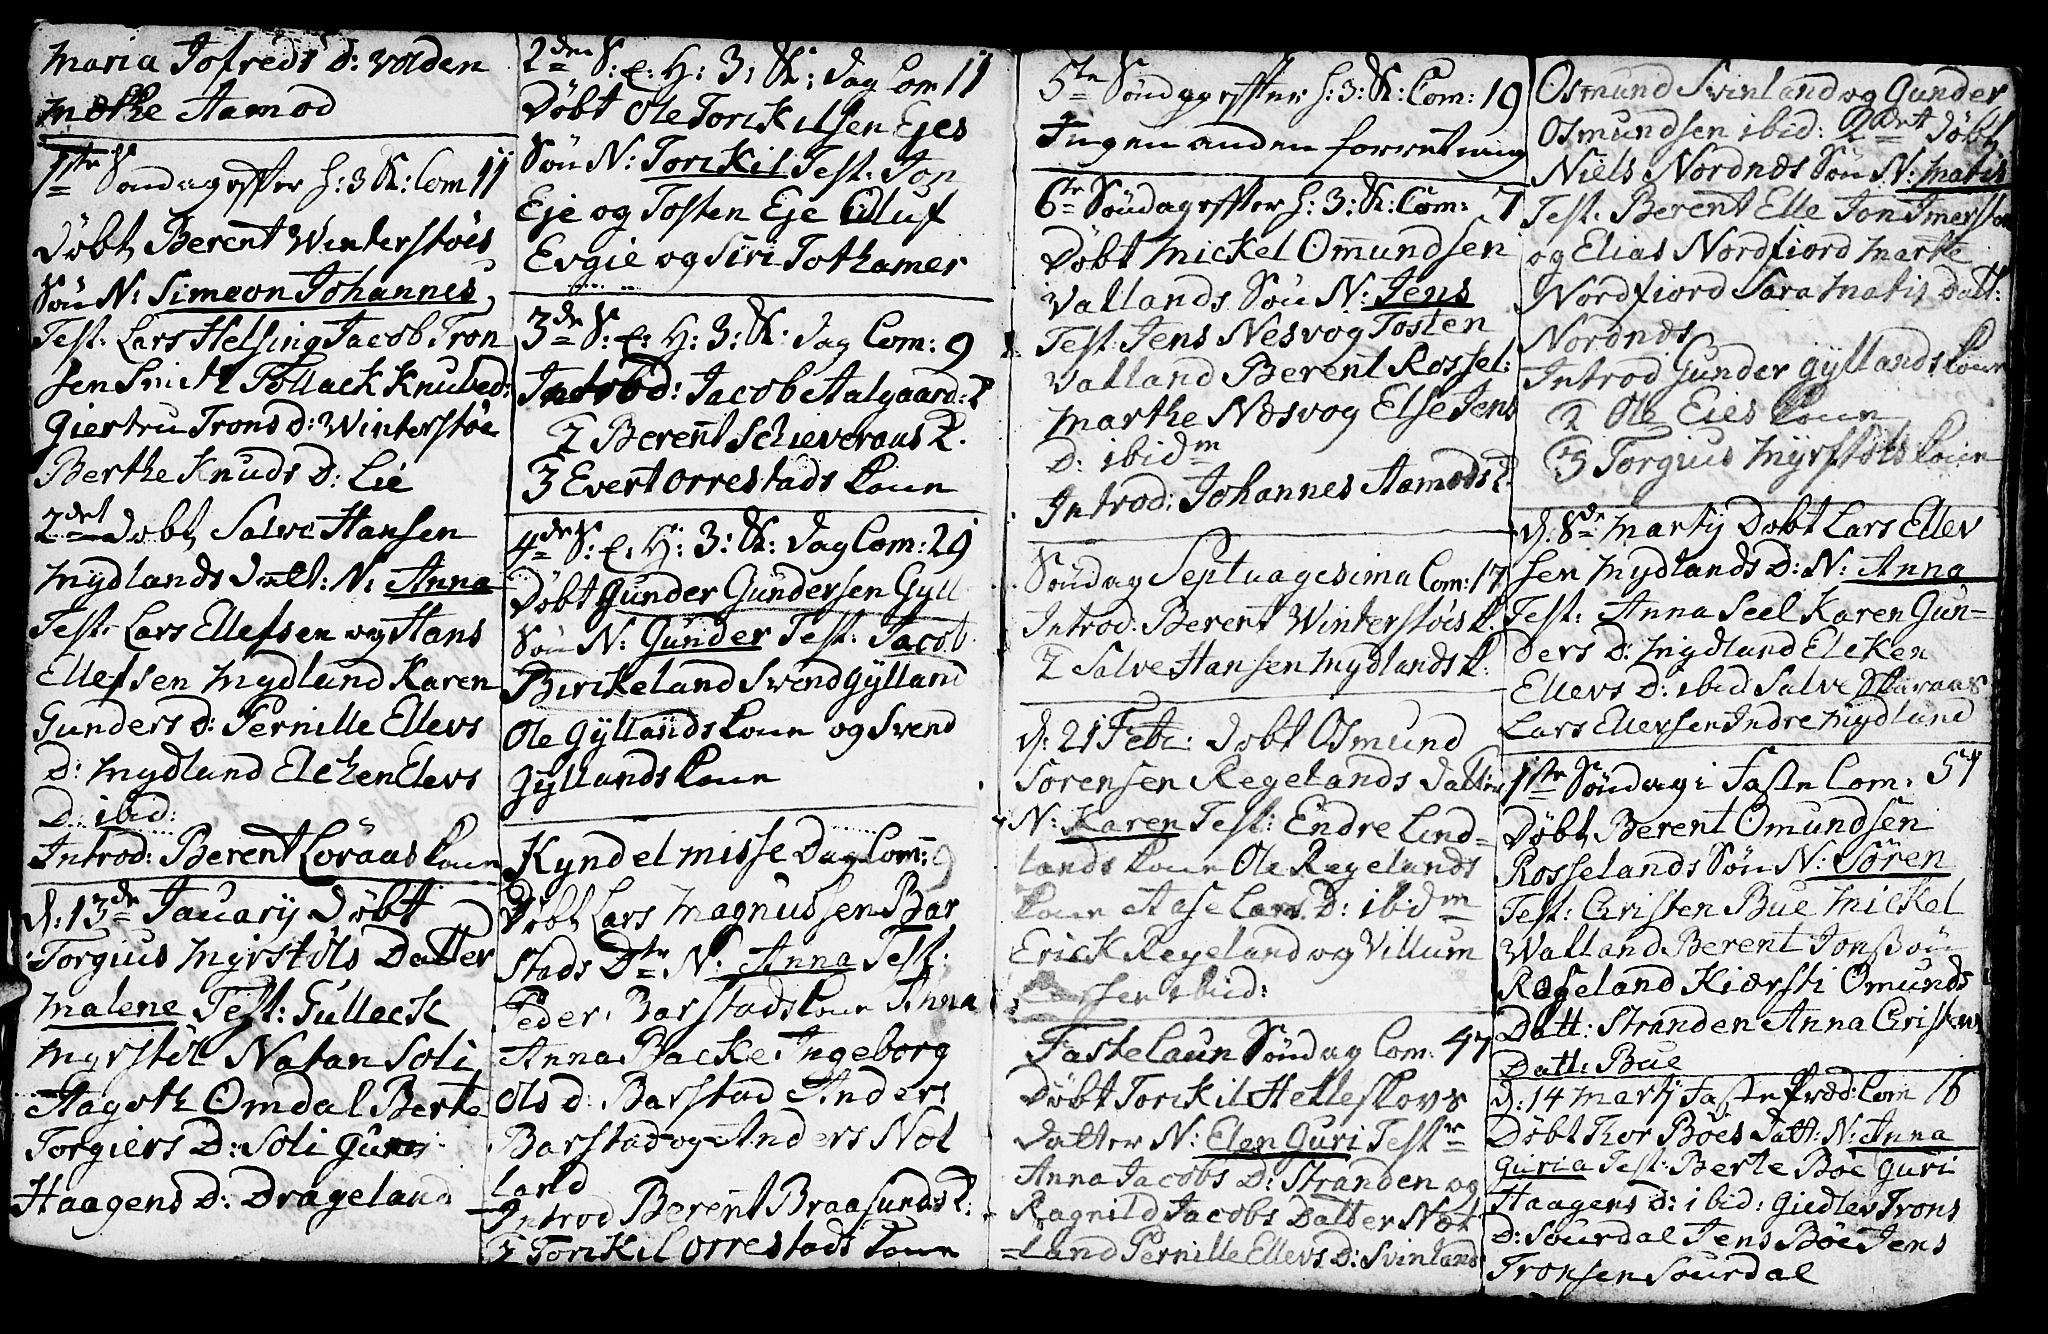 Maria Jofreds D: Volden
Mothe Aamod
1ste Søndag effter H: 3 K: Com 11
Døbt Berent Winterstøls
Søn N: Simeon Johannes
Test: Lars Helsing Jacob Tron
sen Smith Pollack Knubed:
Giertru Trons D: Winterstøe
Berthe Knuds D: Lie
2det Døbt Salve Hansen
Mydlands Datt: N: Anna
Test: Lars Ellefsen og Hans
Ellefsen Mydland Karen
Gunders D: Pernille Ellevs
D: Mydland Elchen Elevs
D: ibid:
Introd: Berent Løraas Kone
d: 13de Januarij Døbt
Torgius Myrstøls Datter
Malene Test: Gulleck
Myrstøl Natan Soli
Aagoth Omdal Berte
Torgiers D: Soli
Haagens D: Drageland
2den S: e: H: 3: K: Dag Com 11
Døbt Ole Torkilsen Ejes
Søn N: Torkil Test: Jon
Eje og Tosten Eje Eiluf
Evgie og Siri Tothamer
3de S: e: H: 3: K: Dag Com: 9
Introd: Jacob Aalgaard: K
2 Berent Schieveraas K.
3 Evert Orrestads Kone
4de S: e: H: 3: K: Dag Com: 29
Døbt Gunder Gundersen Gyll
Søn N: Gunder Test: Jacob
Birkeland Svend Gylland
Ole Gyllands Kone og Svend
Gyllands Kone
Kyndelmisse Dag Com: 9
Døbt Lars Magnussen Bar
stads Dtr. N: Anna Test:
Peder Barstads Kone Anna
Anna Backe Ingeborg
Ols d: Barstad Anders
Barstad og Anders Næt
land
Introd Berent Braasunds K:
2 Torkil Orrestads Kone
5te Søndag effter H: 3: K: Com: 19
Ingen anden forretning
6te Søndag effter H: 3: K: Com: 7
Døbt Mickel Omundsen
Vatlands Søn N: Jens
Test: Jens Nesvog Tosten
Vatland Berent Rossel:
Marthe Nesvog Else Jens
D: ibidm
Introd: Johannes Aamods K
Søndag Septuagesima Com: 17
Introd: Berent Winterstøls K.
2 Salve Hansen Mydlands K:
d: 21 Febr: Døbt Osmund
Sørensen Regelands Datter
N: Karen Test: Endre Lind-
lands Kone Ole Regelands
Kone Aase Lars D: ibidm
Erick Regeland og Villum
ibid:
Fastelaun Søndag Com: 47
Døbt Torkil Helleskovs
Datter N: Elen Guri Testre
Anna Jacobs D: Stranden og
Ragnild Jacobs Datter Næt
land Pernille Ellevs D: Svinland
Osmund Svinland og Gunder
Osmundsen ibid: 2det Døbt
Niels Nordnæs Søn N: Matis
Test: Berent Elle Jon Imerston
og Elias Nordfiord Marte
Nordfiord Sara Matis Datt:
Nordnæs
Introd Gunder Gyllands Kone
2 Ole Eies Kone
og 3 Torgius Myrstøls Kone
d: 8de Martij Døbt Lars Ellev
sen Mydlands D: N: Anna
Test: Anna Seel Karen Gun-
ders D: Mydland Elcken
Ellevs D: ibid Salve Skaraas
Lars Ellevsen Indre Mydland
1ste Søndag i Faste Com: 57
Døbt Berent Omundsen
Rosselands Søn N: Søren
Test: Christen Bue Mickel
Watland Berent Jonssøn
Rogeland Kiersti Omunds
Datt: Stranden Anna Christens
Datt: Bue
d: 14 Martij Faste Præd: Com 16
Døbt Thor Bøes Datt: N: Anna
Guria Test: Berte Bøe Guri
Haagens D: ibid: Giedlev Trons
D: Sourdal Jens Bøe Jens
Tronsen Sourdal